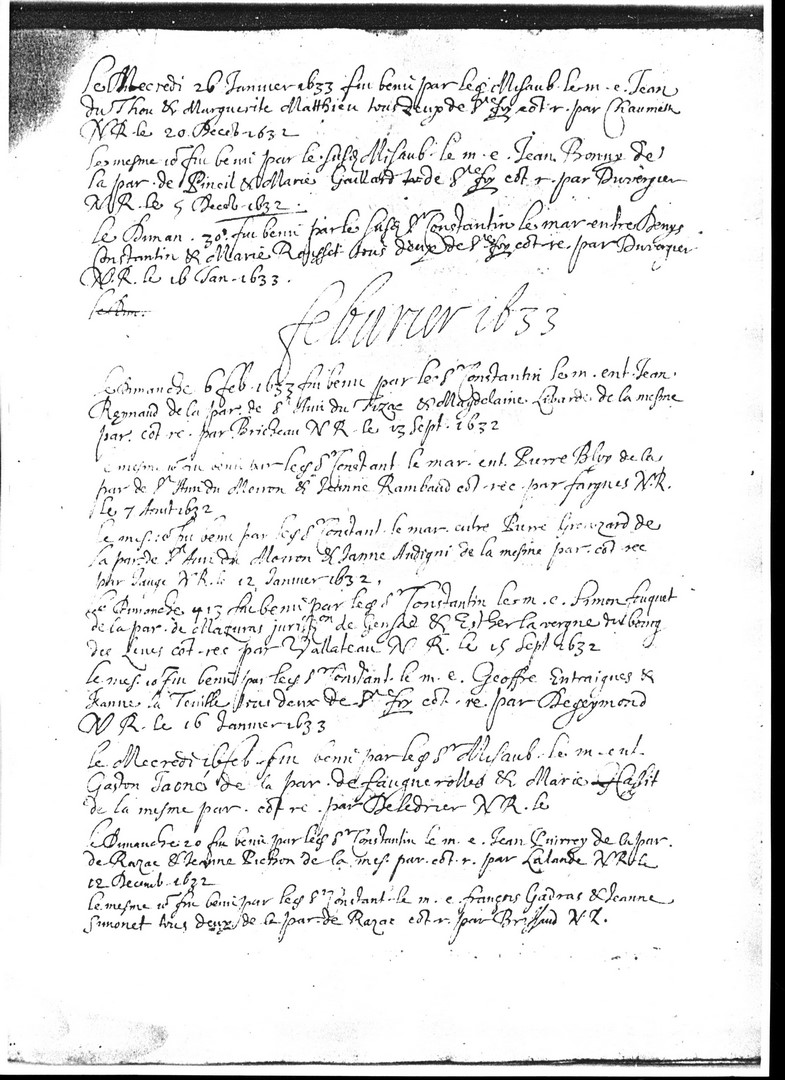 Le Mecredi 26 Janvier 1633 fut beni par led Sr Misaub. le m. e. Jean
du Thou & Marguerite Matthieu tous deux de Ste foy cot. r. par Chaumette
N R. le 20 Decēb 1632
Le mesme io fut beni par le susd Misaub. le m. e. Jean Bonny de
la par. de Pineil & Marie Gaillard de Ste foy cot. r. par Duverguer
N R. le 5 Decēb. 1632.
Le Diman. 30e fut beni par le susd Sr Constantin le mar. entre Denys
Constantin & Marie Rousset tous deux de Ste foy cot. re. par Duverguer
N. R. le 16 Jan. 1633.
le Dim.
feburier 1633
Le Dimanche 6 feb. 1633 fut beni par led Sr Constantin le m. ent. Jean
Reynaud de la par. de St Avi du Tizac & Magdelaine Libarde de la mesme
par. cot. re. par Bricheau N R. le 13 Sept. 1632
Le mesm. io fut beni par led Sr Constant. le mar. ent. Pierre Bloy de la
par de St Avi du Moiron & Jeanne Rambaud cot. rec. par fargues N. R.
le 7 Aout 1632
le mes. io fut beni par led Sr Constant. le mar. entre Pierre de
la par de St Avi du Moiron & Janne Audigni de la mesme par. cot. rec
par Jauge N R. le 12 Janvier 1632.
le Dimanche 13 fut beni par led Sr Constantin le m. e. Simon fouquet
de la par. de Mazuras jurisdon de Gensac & Esther Lavergne du bourg
des Leves cot. rec par Vallateau N R. le 15 Sept 1632
le mes. io fut beni par led Sr Constant. le m. e. Geoffre Entraigues &
Jeanne la Teuille tous deux de Ste foy cot. re. par Degeymond
N R. le 16 Janvier 1633
le Mecredi 16 feb. fut beni par led Sr Misaub. le m. ent.
Gaston Jaoné de la par. de fauguerolles & Marie Hassit
de la mesme par. cot. re. par Deledrier N R. le
le Dimanche 20 fut beni par led Sr Constantin le m. e. Jean Puirrey de la par.
de Razac & Jeanne Pichon de la mes. par. cot. r. par Lalande N R. le
12 Decemb. 1632
le mesme io fut beni par led Sr Constant. le m. e. françois Gadras & Jeanne
Simonet tous deux de la par. de Razac cot. r. par Briffaud N R.